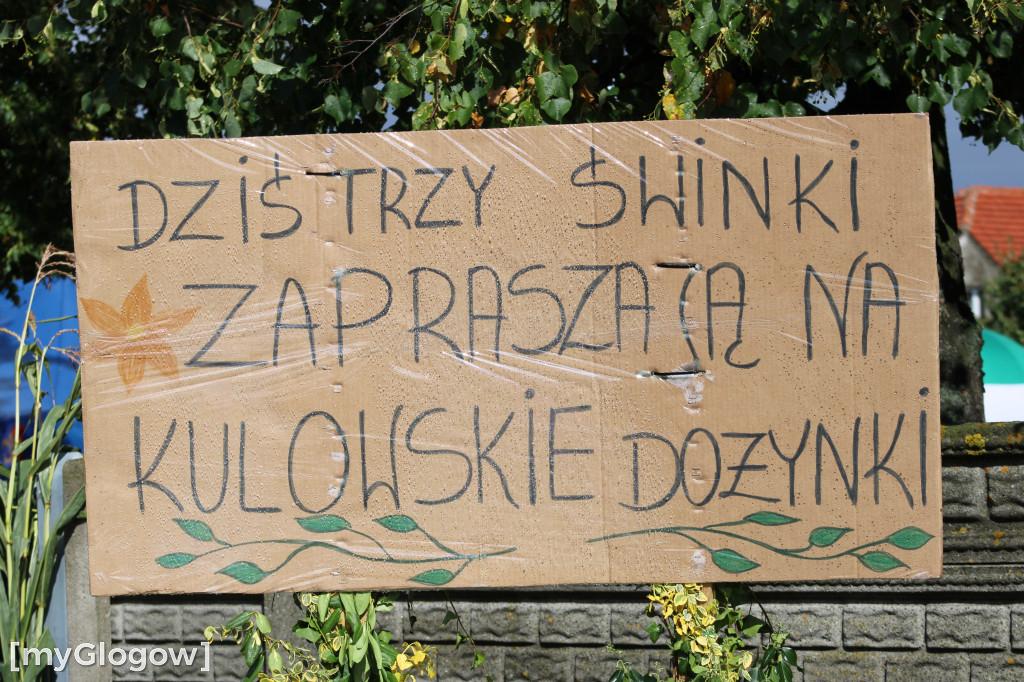 DZIŚ TRZY ŚWINKI
ZAPRASZAJĄ NA
KULOWSKIE DOŻYNKI
[myGlogow]